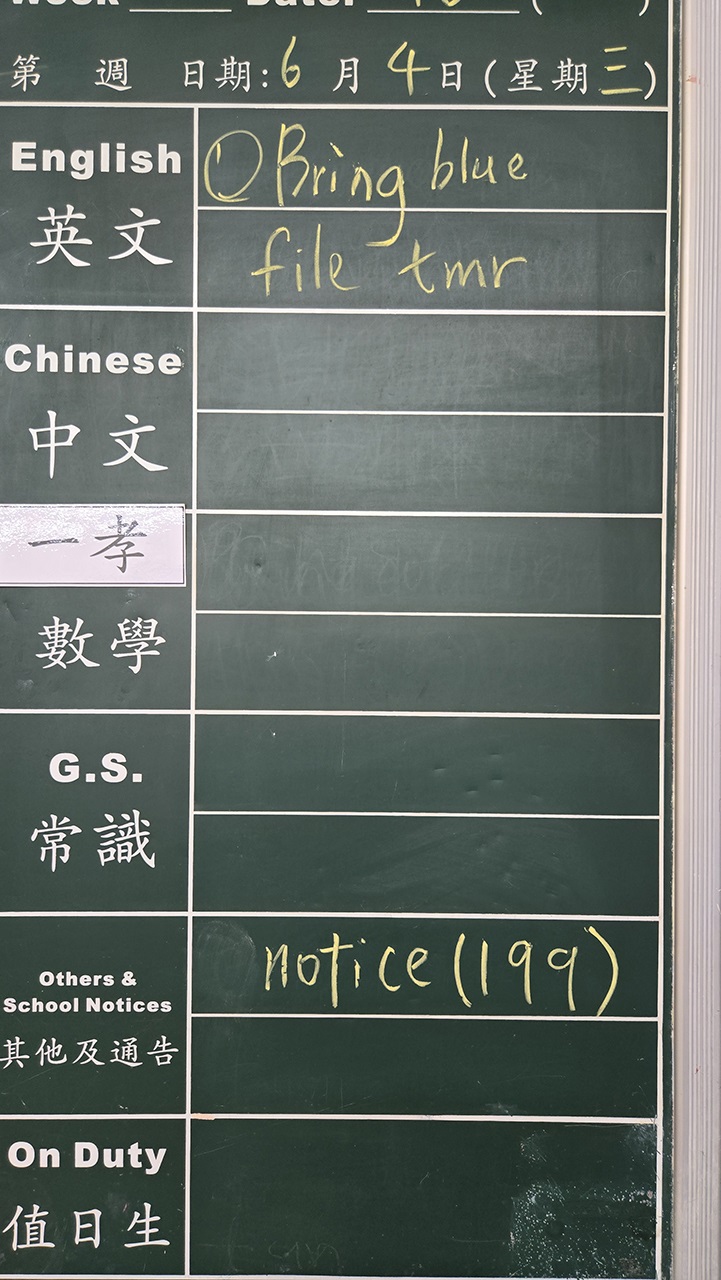 Week Date: (
第 週 日期: 6 月 4 日 (星期三)
English ① Bring blue
英文 file tmr
Chinese
中文
一孝
數學
G.S.
常識
Others & notice (199)
School Notices
其他及通告
On Duty
值日生